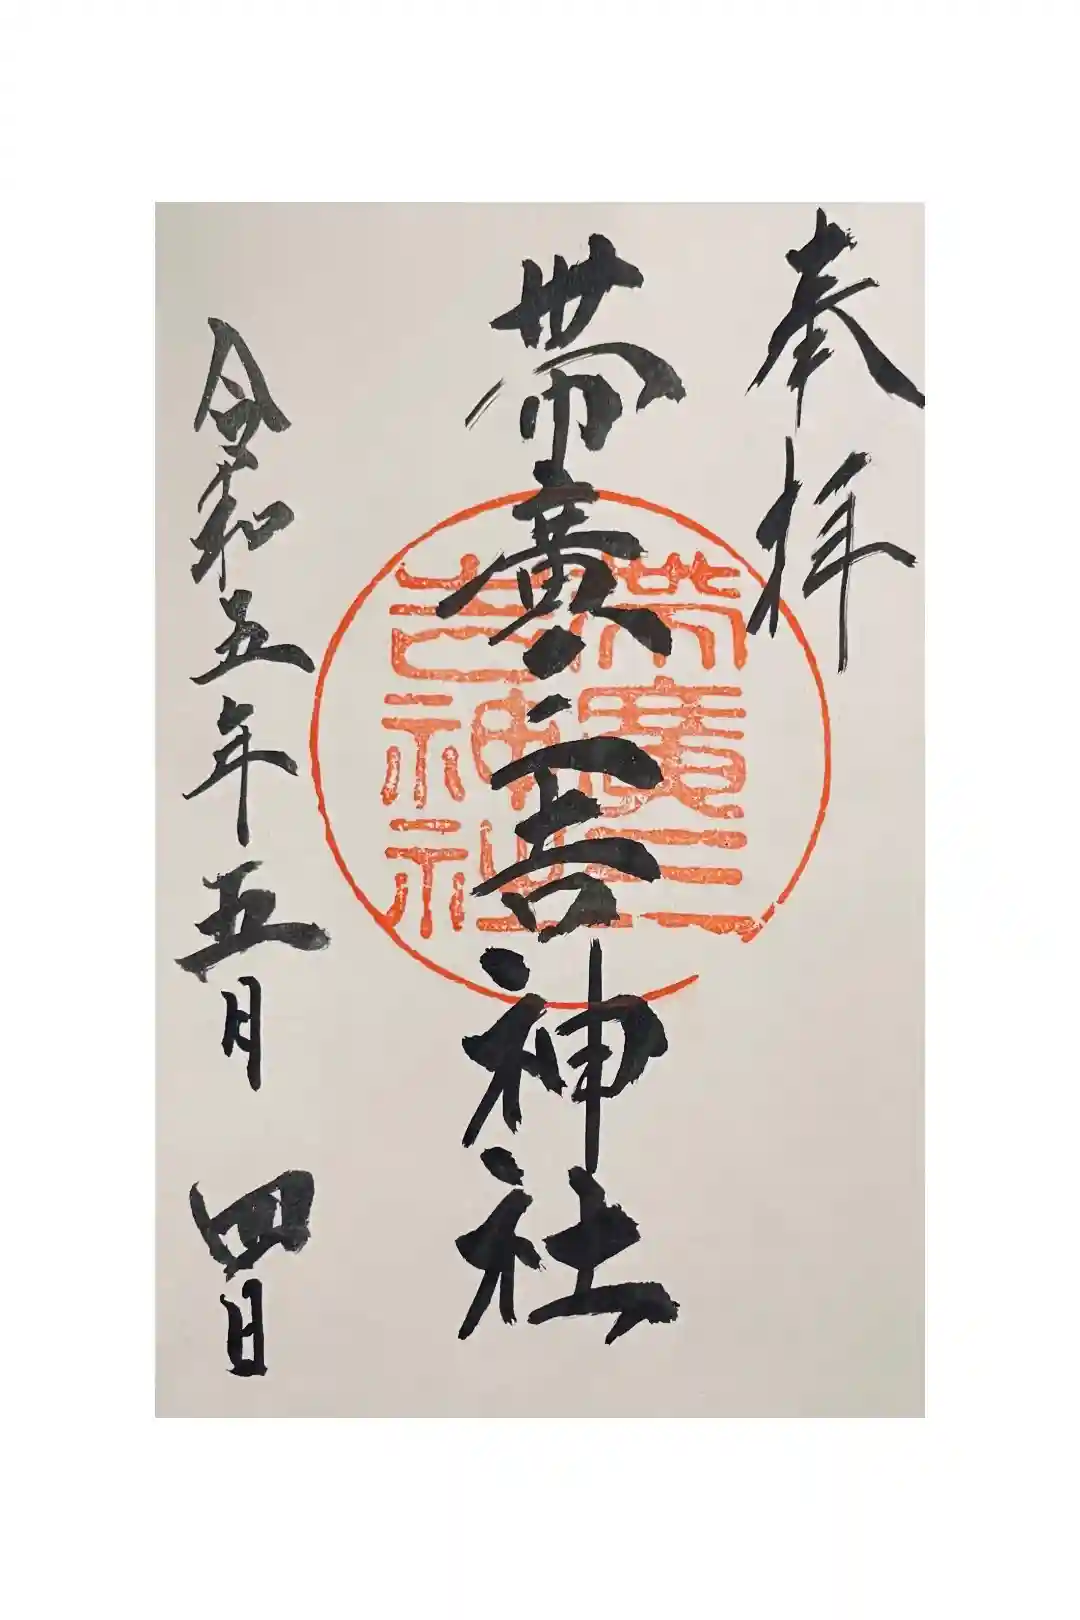 奉拝
帯廣三吉神社
帯廣三
吉神社
令和五年五月四日